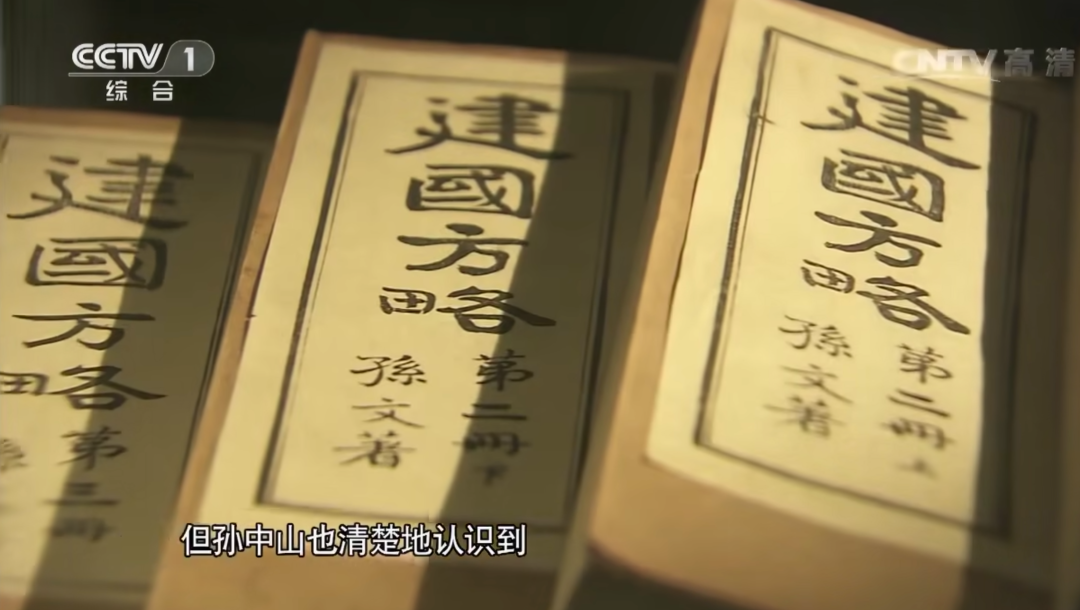 CCTV 1
综合
CNTV 高清
建國方略
第二冊上
孫文著
建國方略
第二冊下
孫文著
建國方略
第三冊
孫
但孙中山也清楚地认识到